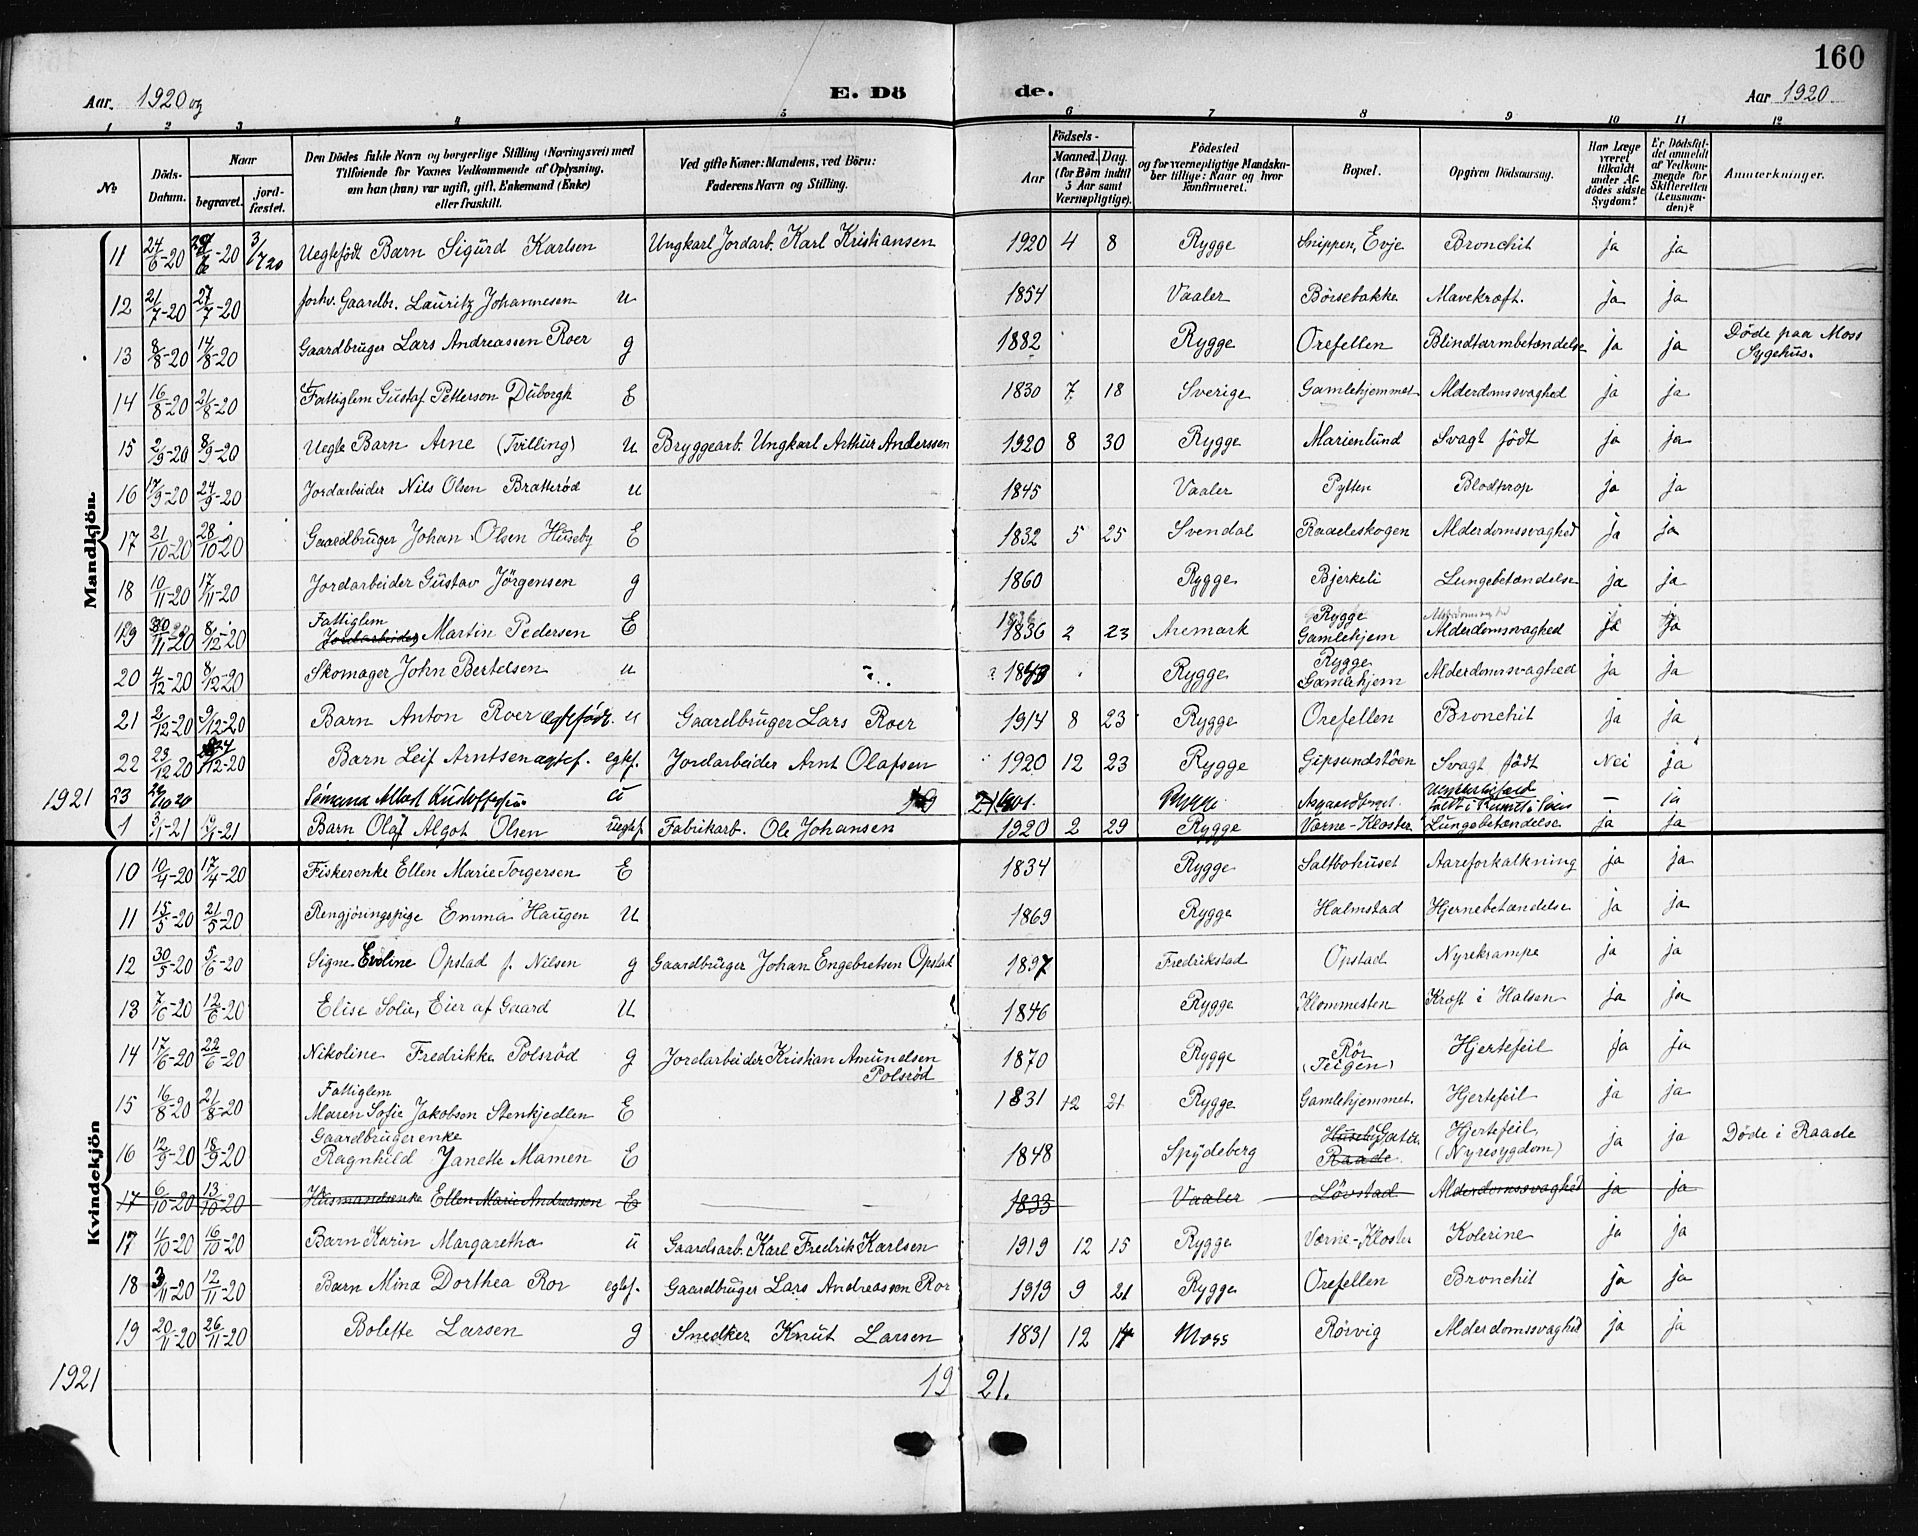 160
Aar. 1920 og
E. Dö
de.
Aar 1920
1 2 3 4 5 6 7 8 9 10 11 12
No
Döds-Datum.
Naar
begravet.
jord-fæstet.
Den Dödes fulde Navn og borgerlige Stilling (Næringsvei) med
Tilföiende for Voxnes Vedkommende af Oplysning,
om han (hun) var ugift, gift, Enkemand (Enke)
eller fraskilt.
Ved gifte Koner: Mandens, ved Börn:
Faderens Navn og Stilling.
Födsels-
Aar
Maaned. Dag.
(for Börn indtil
5 Aar samt
Værnepligtige).
Födested
og for værnepligtige Mandska-
ber tillige: Naar og hvor
konfirmeret.
Bopæl.
Opgiven Dödsaarsag.
Har Læge
været
tilkaldt
under Af-
dödes sidste
Sygdom?
Er Dödsfal-
det anmeldt
af Vedkom-
mende for
Skifteretten
(Lensman-
den)?
Anmerkninger.
Mandkjön
11 24/6-20 29/6-20 3/7 20 Uegtefödt Barn Sigurd Karlsen Ungkarl Jordarb. Karl Kristiansen 1920 4 8 Rygge Snippen, Evje Bronchit ja ja
12 21/7-20 27/7-20 forhv. Gaardbr. Lauritz Johannesen u 1854 Vaaler Börsebakke Mavekræft. ja ja
13 8/8-20 14/8-20 Gaardbruger Lars Andreassen Roer g 1882 Rygge Orefellen Blindtarmbetændelse ja ja Døde paa Moss
Sygehus.
14 16/8-20 21/8-20 Fattiglem Gustaf Petterson Duborgh E 1830 7 18 Sverige Gamlehjemmet Alderdomssvaghed ja ja
15 2/9-20 8/9-20 Uegte Barn Arne (Tvilling) u Bryggearb. Ungkarl Arthur Anderssen 1920 8 30 Rygge Marienlund Svagt födt ja ja
16 17/9-20 24/9-20 Jordarbeider Nils Olsen Bratteröd u 1845 Vaaler Pytten Blodprop ja ja
17 21/10-20 28/10-20 Gaardbruger Johan Olsen Huseby E 1832 5 25 Svendal Raadeskogen Alderdomssvaghed ja ja
18 10/11-20 17/11-20 Jordarbeider Gustav Jörgensen g 1860 Rygge Bjerkeli Lungebetændelse ja ja
19 30/11-20 8/12-20 Fattiglem
Jordarbeider Martin Pedersen E 1836 2 23 Aremark Rygge
Gamlehjem Alderdomssvaghed ja ja
20 4/12-20 8/12-20 Skomager John Bertelsen u Rygge Rygge
Gamlehjem Alderdomssvaghed ja ja
21 2/12-20 9/12-20 Barn Anton Roer egtefödt. u Gaardbruger Lars Roer 1914 8 23 Rygge Orefellen Bronchit ja ja
22 23/12 20 /12-20 Barn Leif Arntsen egtef. egtef. Jordarbeider Arnt Olafsen 1920 12 23 Rygge Gipsundstöen Svagt födt Nei ja
23 /10 20 u Rygge — ja
1921
1 3/1-21 /1-21 Barn Olaf Algot Olsen uegtef Fabrikarb. Ole Johansen 1920 2 29 Rygge Værne-Kloster Lungebetændelse ja ja
Kvindekjön
10 10/4-20 17/4-20 Fiskerenke Ellen Marie Torgersen E 1834 Rygge Saltbohuset Aareforkalkning ja ja
11 15/5-20 21/5-20 Rengjöringspige Emma Haugen u 1869 Rygge Halmstad Hjernebetændelse ja ja
12 30/5-20 5/6-20 Signe Eveline Opstad f. Nilsen g Gaardbruger Johan Engebretsen Opstad 1897 Fredrikstad Opstad Nyrekrampe ja ja
13 7/6-20 12/6-20 Elise Solie, Eier af Gaard u 1846 Rygge Klommesten Kræft i Halsen ja ja
14 17/6-20 22/6-20 Nikoline Fredrikke Polsröd g Jordarbeider Kristian Amundsen
Polsröd 1870 Rygge Rör
(Teigen) Hjertefeil ja ja
15 16/8-20 21/8-20 Fattiglem
Maren Sofie Jakobson Stenkjedlen E 1831 12 21 Rygge Gamlehjemmet. Hjertefeil ja ja
16 12/9-20 18/9-20 Gaardbrugerenke
Ragnhild Janette Mamen E 1848 Spydeberg Huseby
Raade Hjertefeil
(Nyresygdom) ja ja Døde i Raade
17 6/10-20 13/10-20 Husmandsenke Ellen Marie Andreassen E 1833 Vaaler Lövstad Alderdomssvaghed ja ja
17 /10-20 16/10-20 Barn Karin Margaretha u Gaardsarb. Karl Fredrik Karlsen 1919 12 15 Rygge Værne-Kloster Kolerine ja ja
18 3/11-20 12/11-20 Barn Mina Dorthea Ror egtef. Gaardbruger Lars Andreassen Ror 1919 9 21 Rygge Orefellen Bronchit ja ja
19 20/11-20 26/11-20 Bolette Larsen g Snedker Knut Larsen 1831 12 14 Moss Rörvig Alderdomssvaghed ja ja
1921
19 21.